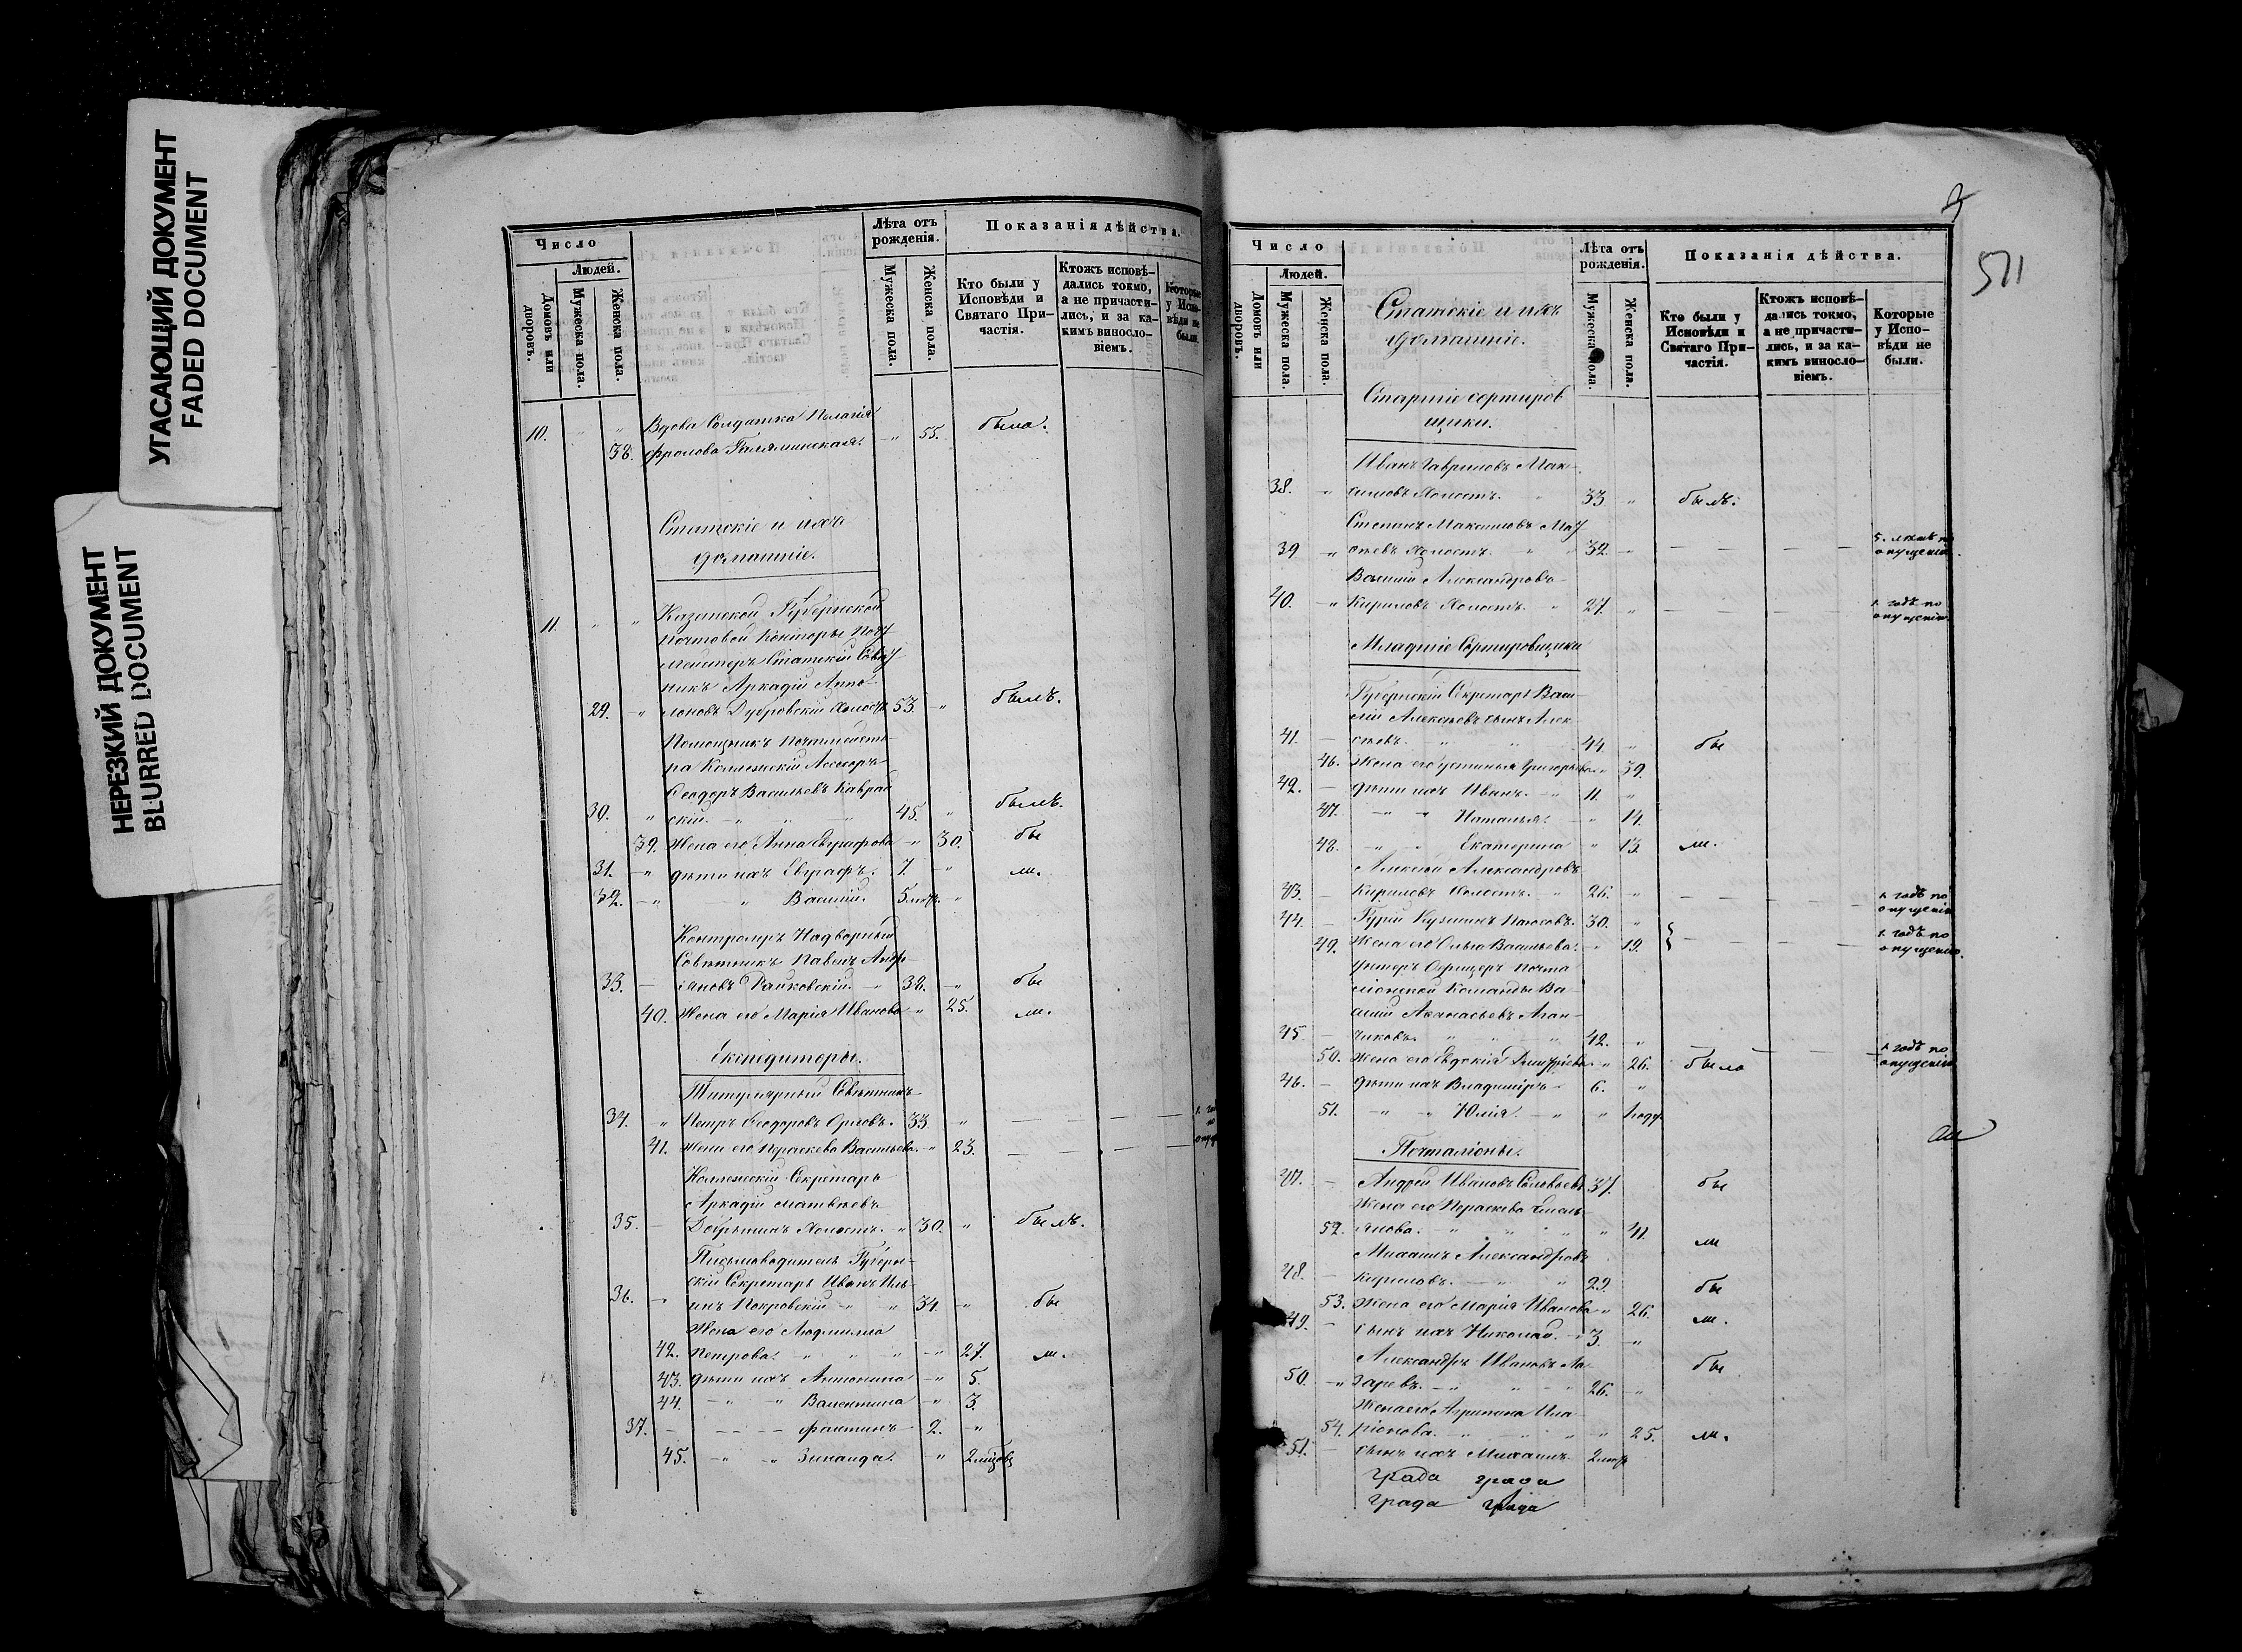 УГАСАЮЩИЙ ДОКУМЕНТ
FADED DOCUMENT
НЕРЕЗКИЙ ДОКУМЕНТ
BLURRED DOCUMENT
Число
Людей.
Домовъ или дворовъ.
Мужеска пола.
Женска пола.
Лѣта отъ рожденія.
Мужеска пола.
Женска пола.
Показанія дѣйства.
Кто были у Исповѣди и Святаго Причастія.
Ктожъ исповѣдались токмо, а не причастились, и за какимъ винословіемъ.
Которые у Исповѣди не были.
10. Вдова Солдатка Пелагія
38. Фролова 55. была.
Статскіе и ихъ
домашніе.
11. Казанской Губернской
Почтовой Конторы Почт
мейстеръ Статскій Совѣт
никъ Аркадій Аппо-
29. " лоновъ Дубровскій Холостъ 53. " былъ.
Помощникъ Почтмейсте-
ра Коллежскій Ассесоръ
Ѳеодоръ Васильевъ
30. " скій. 45. " былъ.
39. Жена его Анна Евграфова " 30. бы
31. " дѣти ихъ Евграфъ. 7. " ли.
32. " " Василій. 5. "
Контролеръ Надворный
Совѣтникъ Павелъ Андр-
33. іановъ Райковскій. 38. " бы
40. Жена его Марія Иванова " 25. ли.
Експедиторы.
Титулярный Совѣтникъ
34. " Петръ Ѳеодоровъ Орловъ. 33 "
41. Жена его Параскева Васильева. " 23.
Коллежскій Секретарь
Аркадій Матвѣевъ
35. Холостъ. " 30. " былъ.
Письмоводитель Губерн-
скій Секретарь Иванъ Иль-
36. инъ Покровскій " " 34. " бы
Жена его Людмила
42. Петрова. " " " 27. ли.
43. дѣти ихъ Антонина " 5.
44. " " Валентина " 3.
37. 2. "
45. " " Зинаида. " 2 мѣсяц.
511
Число
Людей.
Домовъ или дворовъ.
Мужеска пола.
Женска пола.
Статскіе и ихъ
домашніе.
Лѣта отъ рожденія.
Мужеска пола.
Женска пола.
Показанія дѣйства.
Кто были у Исповѣди и Святаго Причастія.
Ктожъ исповѣдались токмо, а не причастились, и за какимъ винословіемъ.
Которые у Исповѣди не были.
Старшіе сортиров
щики.
Иванъ Гавриловъ Мак-
38. " симовъ Холостъ. 33 " былъ.
Степанъ Максимовъ 5. лѣтъ по
39 " Холостъ. 32. " опущенію.
Василій Александровъ
40. " Кириловъ Холостъ. " 27. " 1. годъ по опущенію.
Младшіе Сортировщики
Губернскій Секретарь Васи-
лій Алексѣевъ сынъ Алек-
41. сѣевъ. " 44. " бы
46. Жена его Устинья Григорьева " 39.
42. дѣти ихъ Иванъ. " 11. "
47. " " Наталья. " 14.
48. " " Екатерина " 13. ли.
Алексѣй Александровъ
43. Кириловъ Холостъ. " 26. " 1. годъ по опущенію
44. Гурій Кузминъ 30. " 1. годъ по
49. Жена его Ольга Васильева. " 19. опущенію.
Унтеръ Офицеръ Почта
ліонской Команды Ва-
силій Аѳанасьевъ Аган-
45. чиковъ. " 42. " 1. годъ по
50. Жена его Евдокія Димитріева. " 26. была опущенію
46. дѣти ихъ Владиміръ 6. "
51. " " Юлія. " " 1 года
Почталіоны.
47. Андрей Ивановъ Соловьевъ 37. бы
Жена его Параскева Емель-
52. янова. " " " 41. ли
Михаилъ Александровъ
48. Кириловъ. " " 29. бы
53. Жена его Марія Иванова " 26. ли.
49. сынъ ихъ Николай. 3. "
Александръ Ивановъ Ла- бы
50. " заревъ. " " 26. "
Жена его Агрипина Ила-
54. ріонова. " " " 25. ли.
51. сынъ ихъ Михаилъ. 2
града града
града града